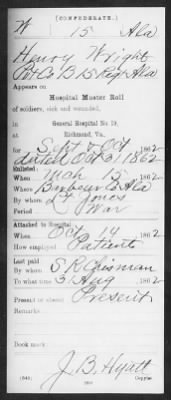 (CONFEDERATE.)
W 15 Ala
Henry Wright
Pvt Co B 15 Regt Ala
Appears on
Hospital Muster Roll
of soldiers, sick and wounded,
in
General Hospital No. 19,
Richmond, Va.,
for Sept & Oct, 1862
dated Oct 31 1862
Enlisted:
When Mch 15, 1862
Where Barbour Co Ala
By whom Lt Jones
Period War
Attached to Hospital:
When Oct 14, 1862
How employed Patient
Last paid:
By whom S R Chisman
To what time 31 Aug, 1862
Present or absent Present
Remarks:
Book mark:
J. B. Hyatt
Copyist.